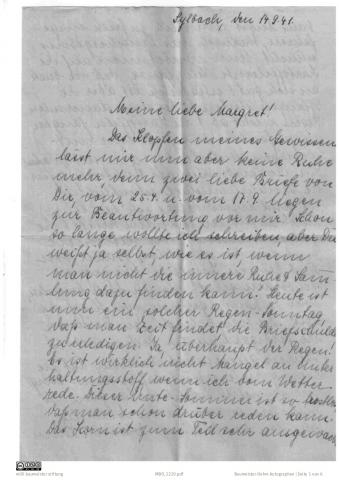 Sylbach, den 17.8.41.
Meine liebe Margret!
Das Klopfen meines Gewissens
lässt mir nun aber keine Ruhe
mehr, denn zwei liebe Briefe von
Dir, vom 25.4. u. vom 17.7. liegen
zur Beantwortung vor mir. Schon
so lange wollte ich schreiben aber Du
weißt ja selbst, wie es ist wenn
man nicht die innere Ruhe & Samm
lung dazu finden kann! Heute ist
nun ein solcher Regen-Sonntag
daß man Zeit findet die Briefschulden
zu erledigen. Ja, überhaupt der Regen!
Es ist wirklich nicht Mangel an Unter
haltungsstoff wenn ich vom Wetter
rede. Dieser -Sommer ist so
daß man schon drüber reden kann.
Das Korn ist zum Teil sehr ausgewach
will baumeister stiftung
Baumeister Archiv Autographen | Seite 1 von 6